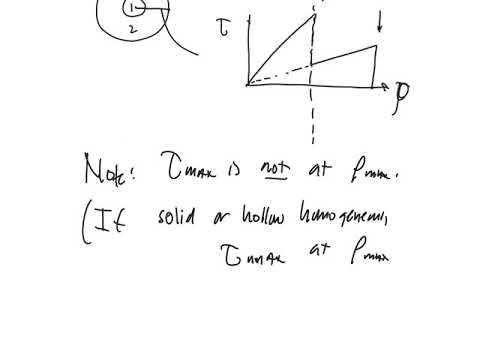 1
2
τ
ρ
Note: τmax is not at ρmax.
(If solid or hollow homogeneous,
τmax at ρmax